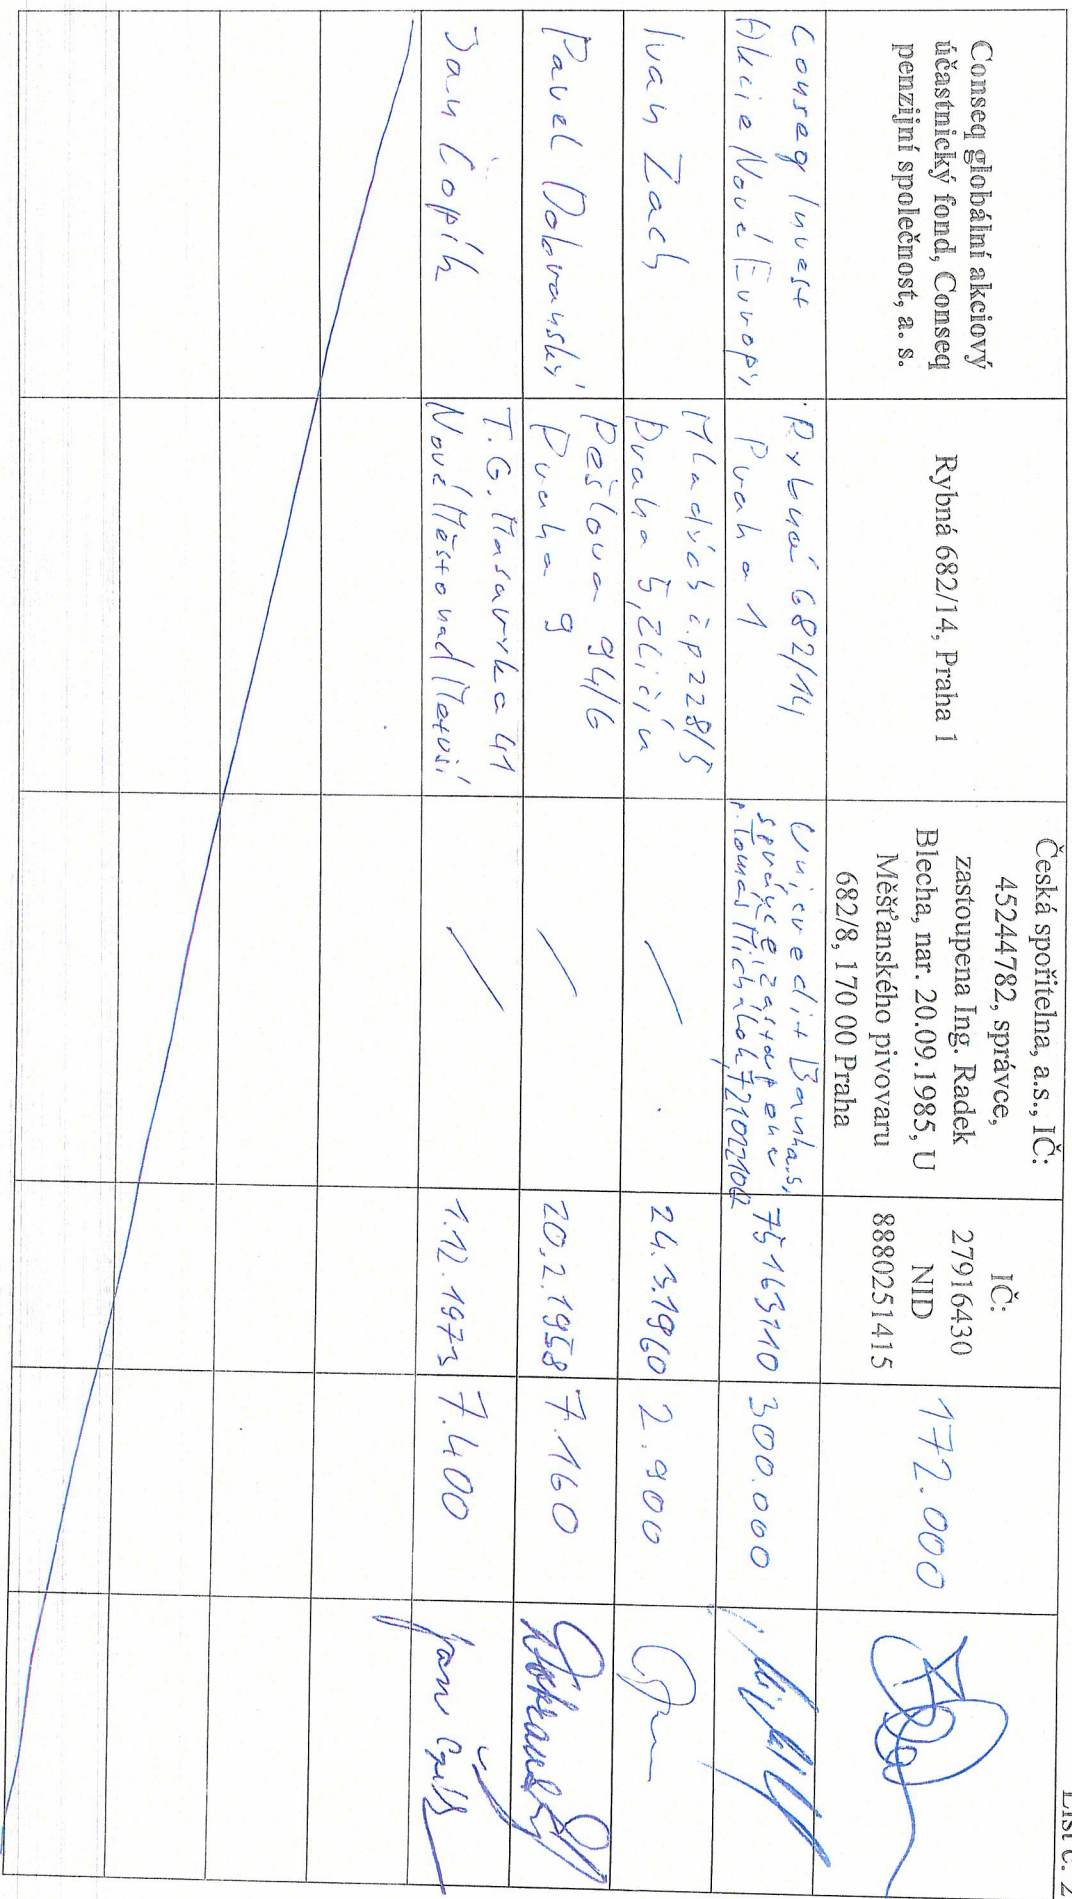 List č. 2
Conseq globální akciový
účastnický fond, Conseq
penzijní společnost, a. s.
Rybná 682/14, Praha 1
Česká spořitelna, a.s., IČ:
45244782, správce,
zastoupena Ing. Radek
Blecha, nar. 20.09.1985, U
Měšťanského pivovaru
682/8, 170 00 Praha
IČ:
27916430
NID
8880251415
172.000
Conseq Invest
Akcie Nové Evropy
Rybná 682/14,
Praha 1
Unicredit Bank a.s,
správce, zastoupena
p. Tomáš Michálek,
75163110
300.000
Ivan Zach
Mladých č.p 228/5
Praha 5, Zličín
24.3.1960
2.900
Pavel Dobranský
Pešlova 94/6
Praha 9
20.2.1958
7.160
Jan Čopík
T.G. Masaryka 41
Nové Město nad Metují
1.12.1973
7.400
Jan Čopík